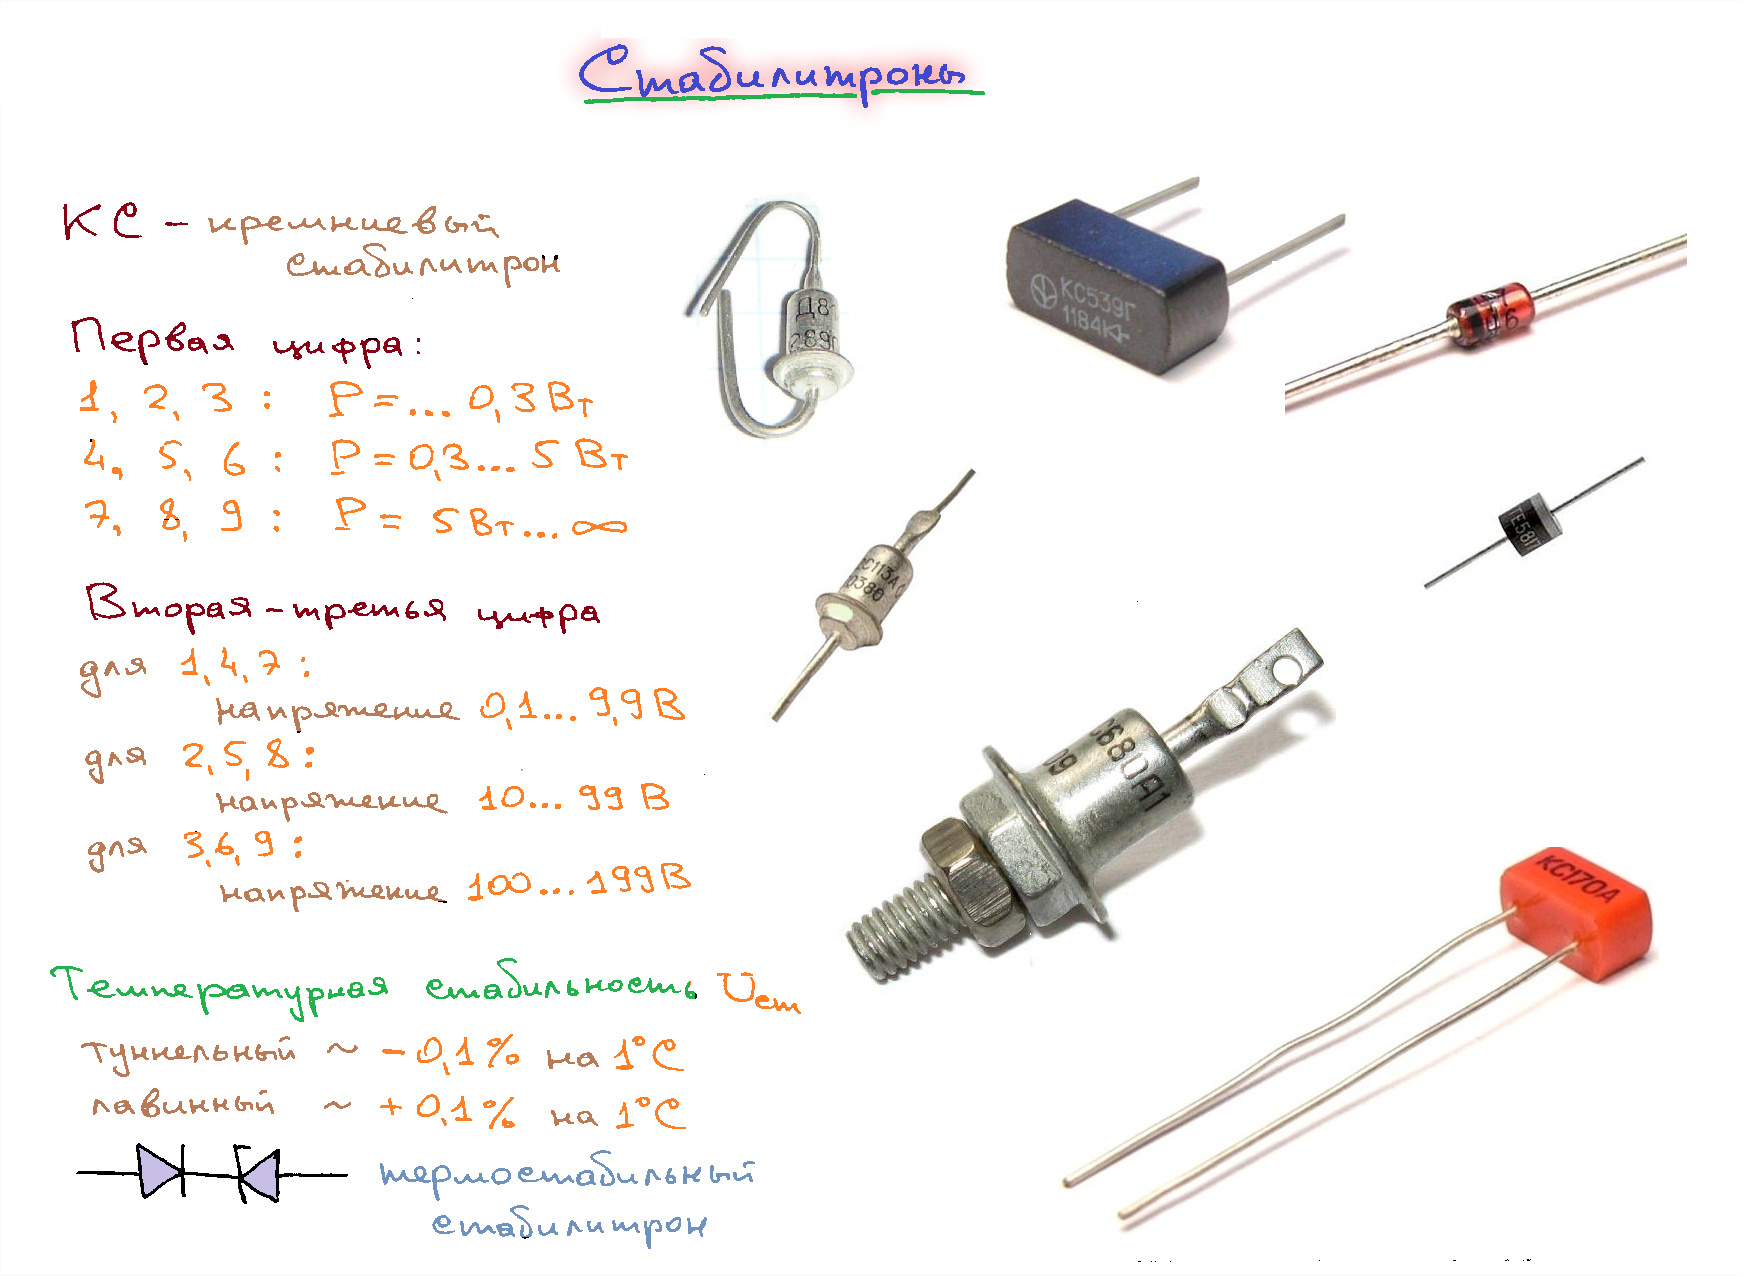 Стабилитроны
КС - кремниевый
стабилитрон
Первая цифра:
1, 2, 3 : P = ... 0,3 Вт
4, 5, 6 : P = 0,3 ... 5 Вт
7, 8, 9 : P = 5 Вт ... ∞
Вторая - третья цифра
для 1, 4, 7 :
напряжение 0,1 ... 9,9 В
для 2, 5, 8 :
напряжение 10 ... 99 В
для 3, 6, 9 :
напряжение 100 ... 199 В
Температурная стабильность Uст
туннельный ~ - 0,1 % на 1°С
лавинный ~ + 0,1 % на 1°С
термостабильный
стабилитрон
Д8
289
КС539Г
1184
С113А
0380
ТЕ5817
С680А1
09
КС170А